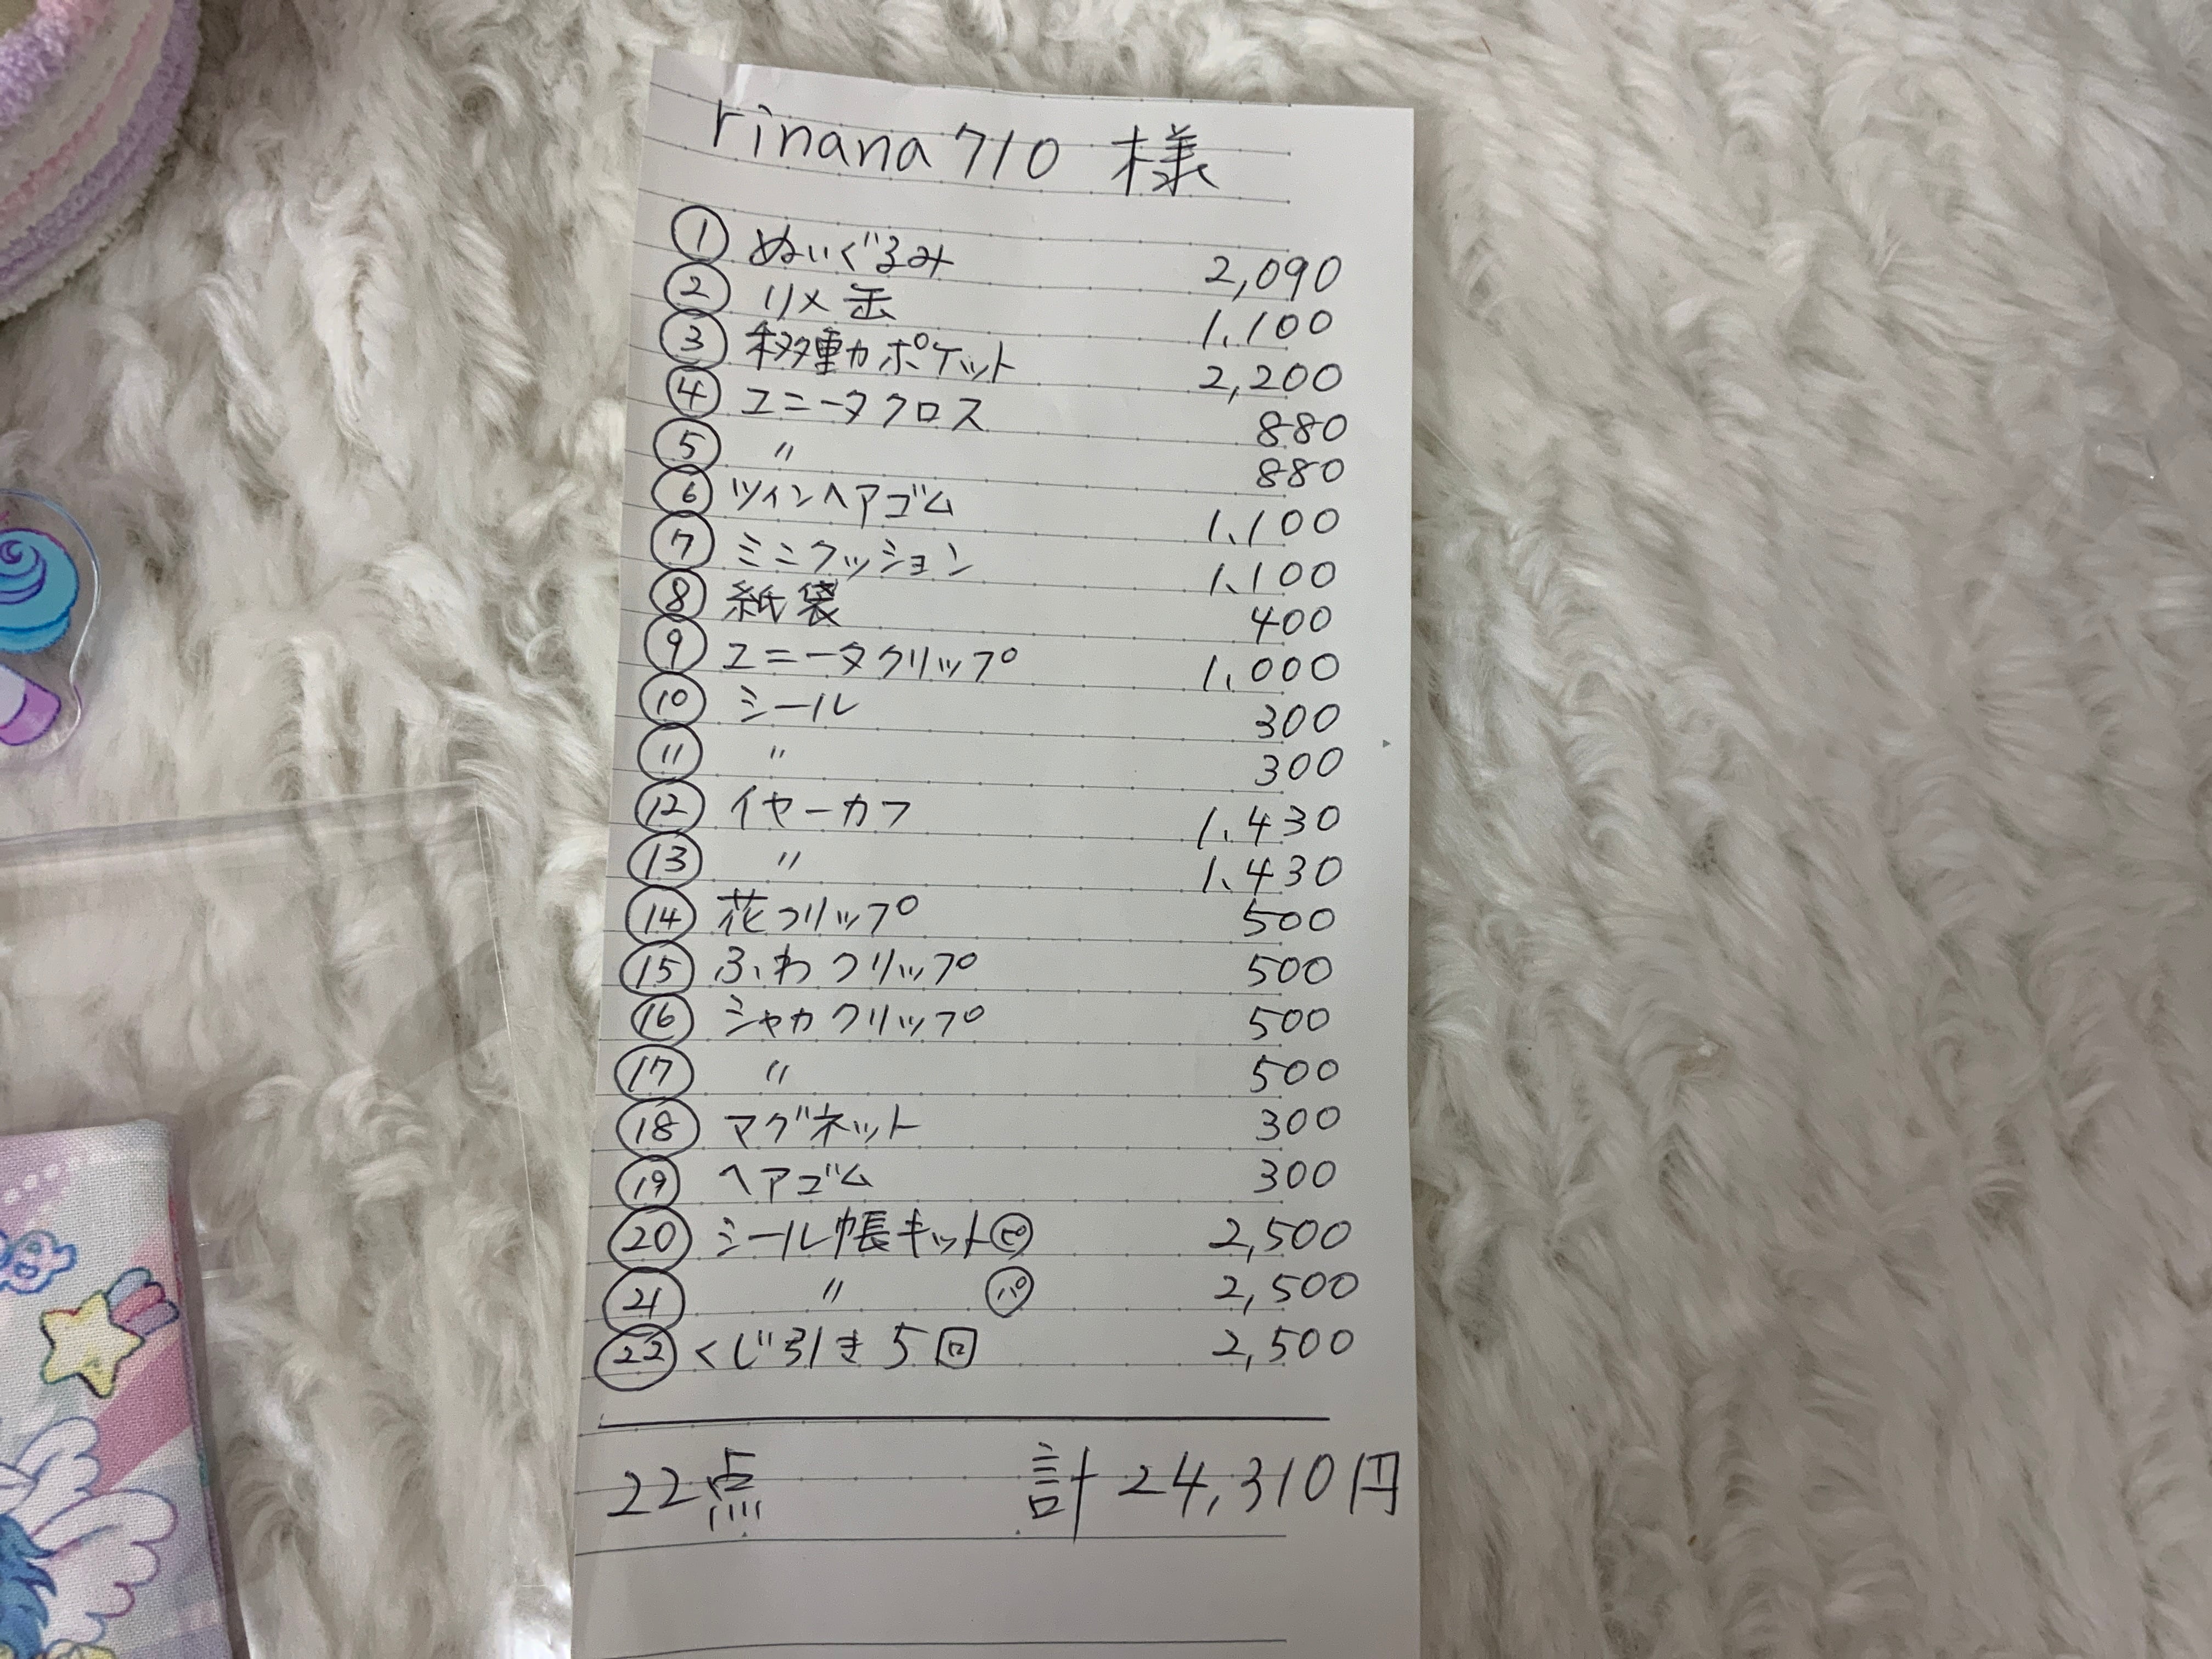 rinana710 様
① ぬいぐるみ 2,090
② リメ缶 1,100
③ 移動ポケット 2,200
④ ユニータクロス 880
⑤ 〃 880
⑥ ツインヘアゴム 1,100
⑦ ミニクッション 1,100
⑧ 紙袋 400
⑨ ユニータクリップ 1,000
⑩ シール 300
⑪ 〃 300
⑫ イヤーカフ 1,430
⑬ 〃 1,430
⑭ 花クリップ 500
⑮ ふわクリップ 500
⑯ シャカクリップ 500
⑰ 〃 500
⑱ マグネット 300
⑲ ヘアゴム 300
⑳ シール帳キット ピ 2,500
㉑ 〃 パ 2,500
㉒ くじ引き5回 2,500
22点 計 24,310円